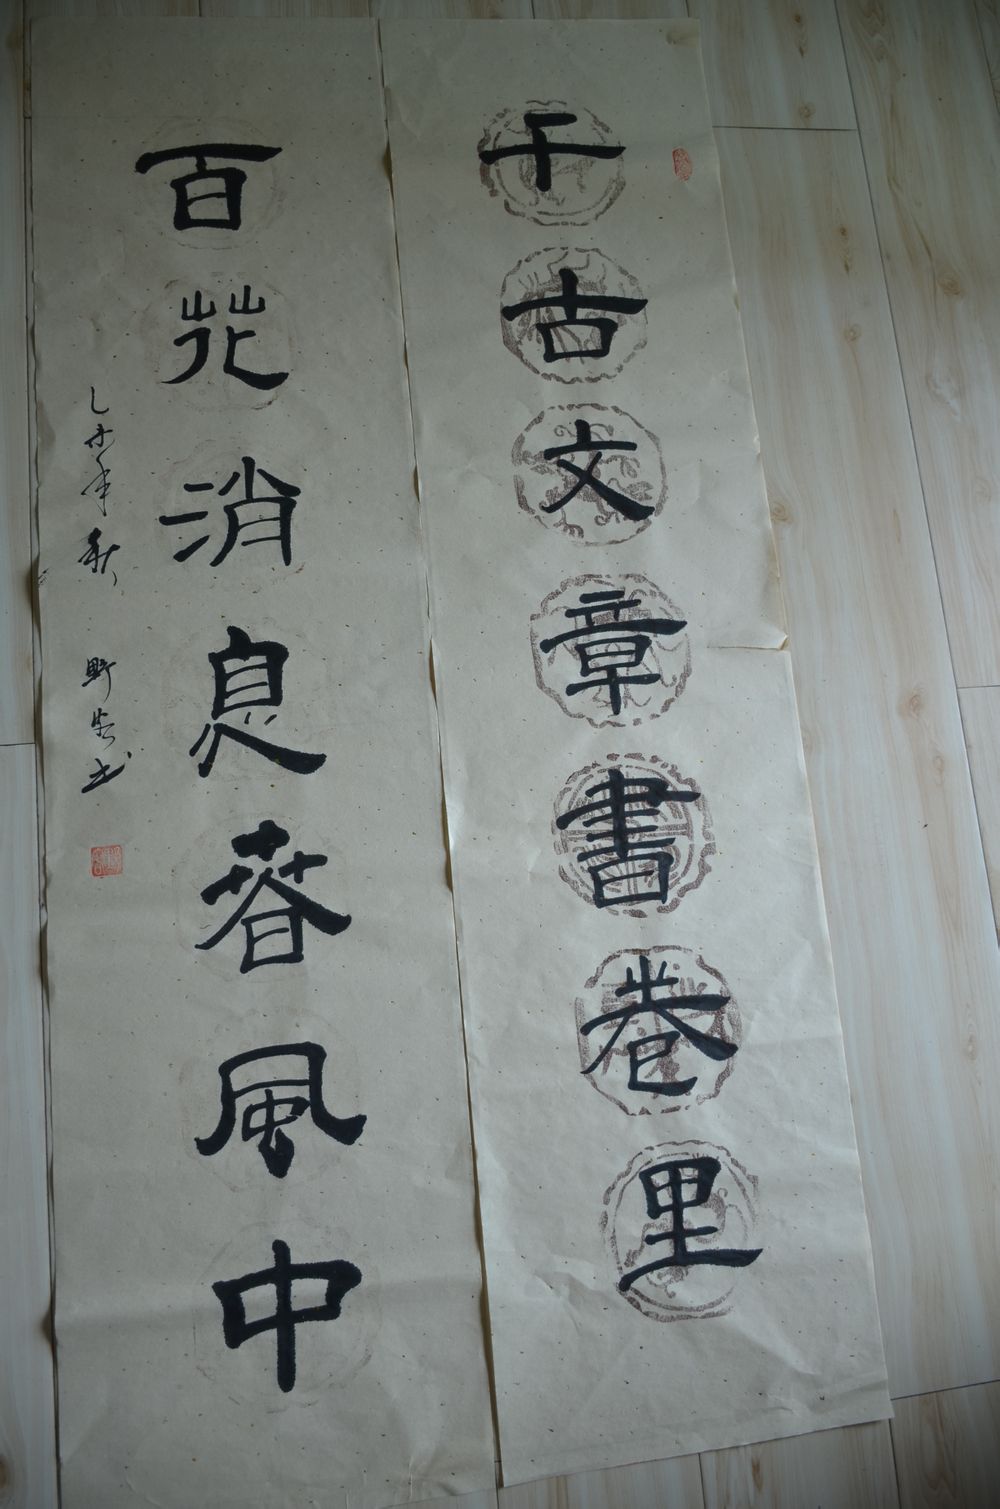 千古文章書卷里
百花消息春風中
乙未年秋 野岩书